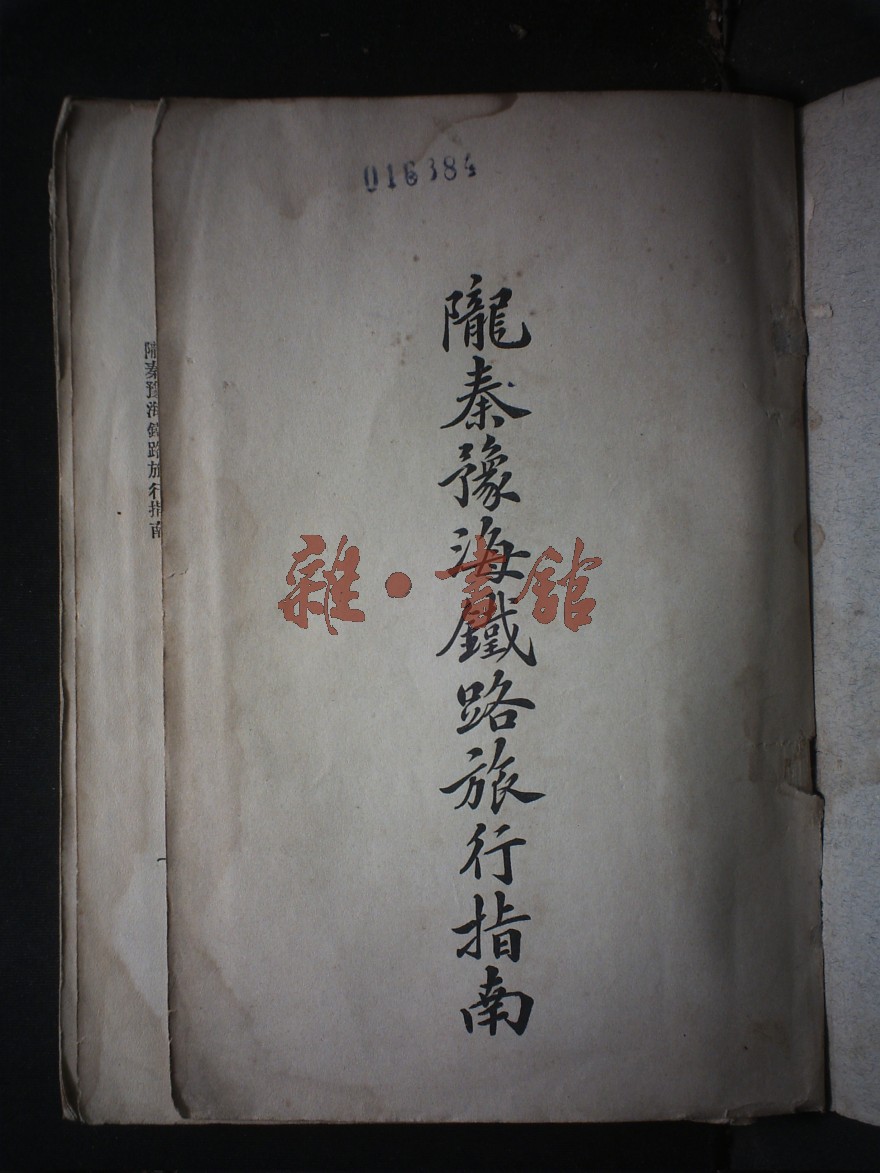 016384
隴秦豫海鐵路旅行指南
雜·書館
隴秦豫海鐵路旅行指南